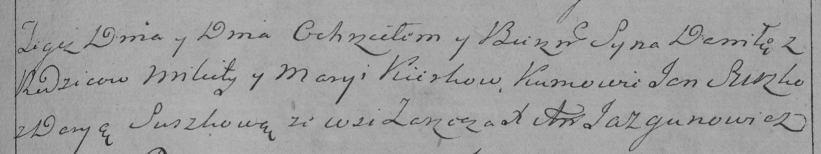 Tegoż Dnia y Dnia Ochrzciłem y Bierzm Syna Daniłę z
Rodzicow Mikity y Maryi Kiiskow, Kumowie Jan Suszko
z Daryą Suszkową ze wsi Zarzecza X Ant Jazgunowicz